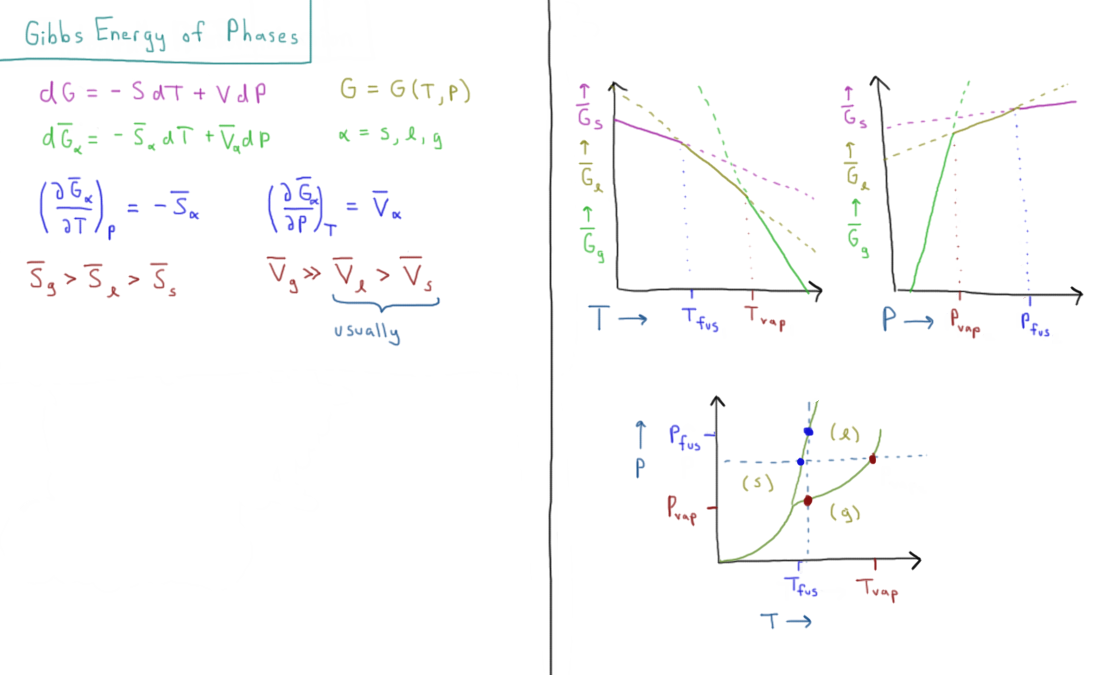 Gibbs Energy of Phases
dG = - S dT + V dP
G = G(T, P)
dG̅α = - S̅α dT + V̅α dP
α = s, l, g
(∂G̅α/∂T)P = - S̅α
(∂G̅α/∂P)T = V̅α
S̅g > S̅l > S̅s
V̅g >> V̅l > V̅s
usually
↑
G̅s
↑
G̅l
↑
G̅g
T →
Tfus
Tvap
↑
G̅s
↑
G̅l
↑
G̅g
P →
Pvap
Pfus
↑
P
Pfus
Pvap
(l)
(s)
(g)
Tfus
Tvap
T →